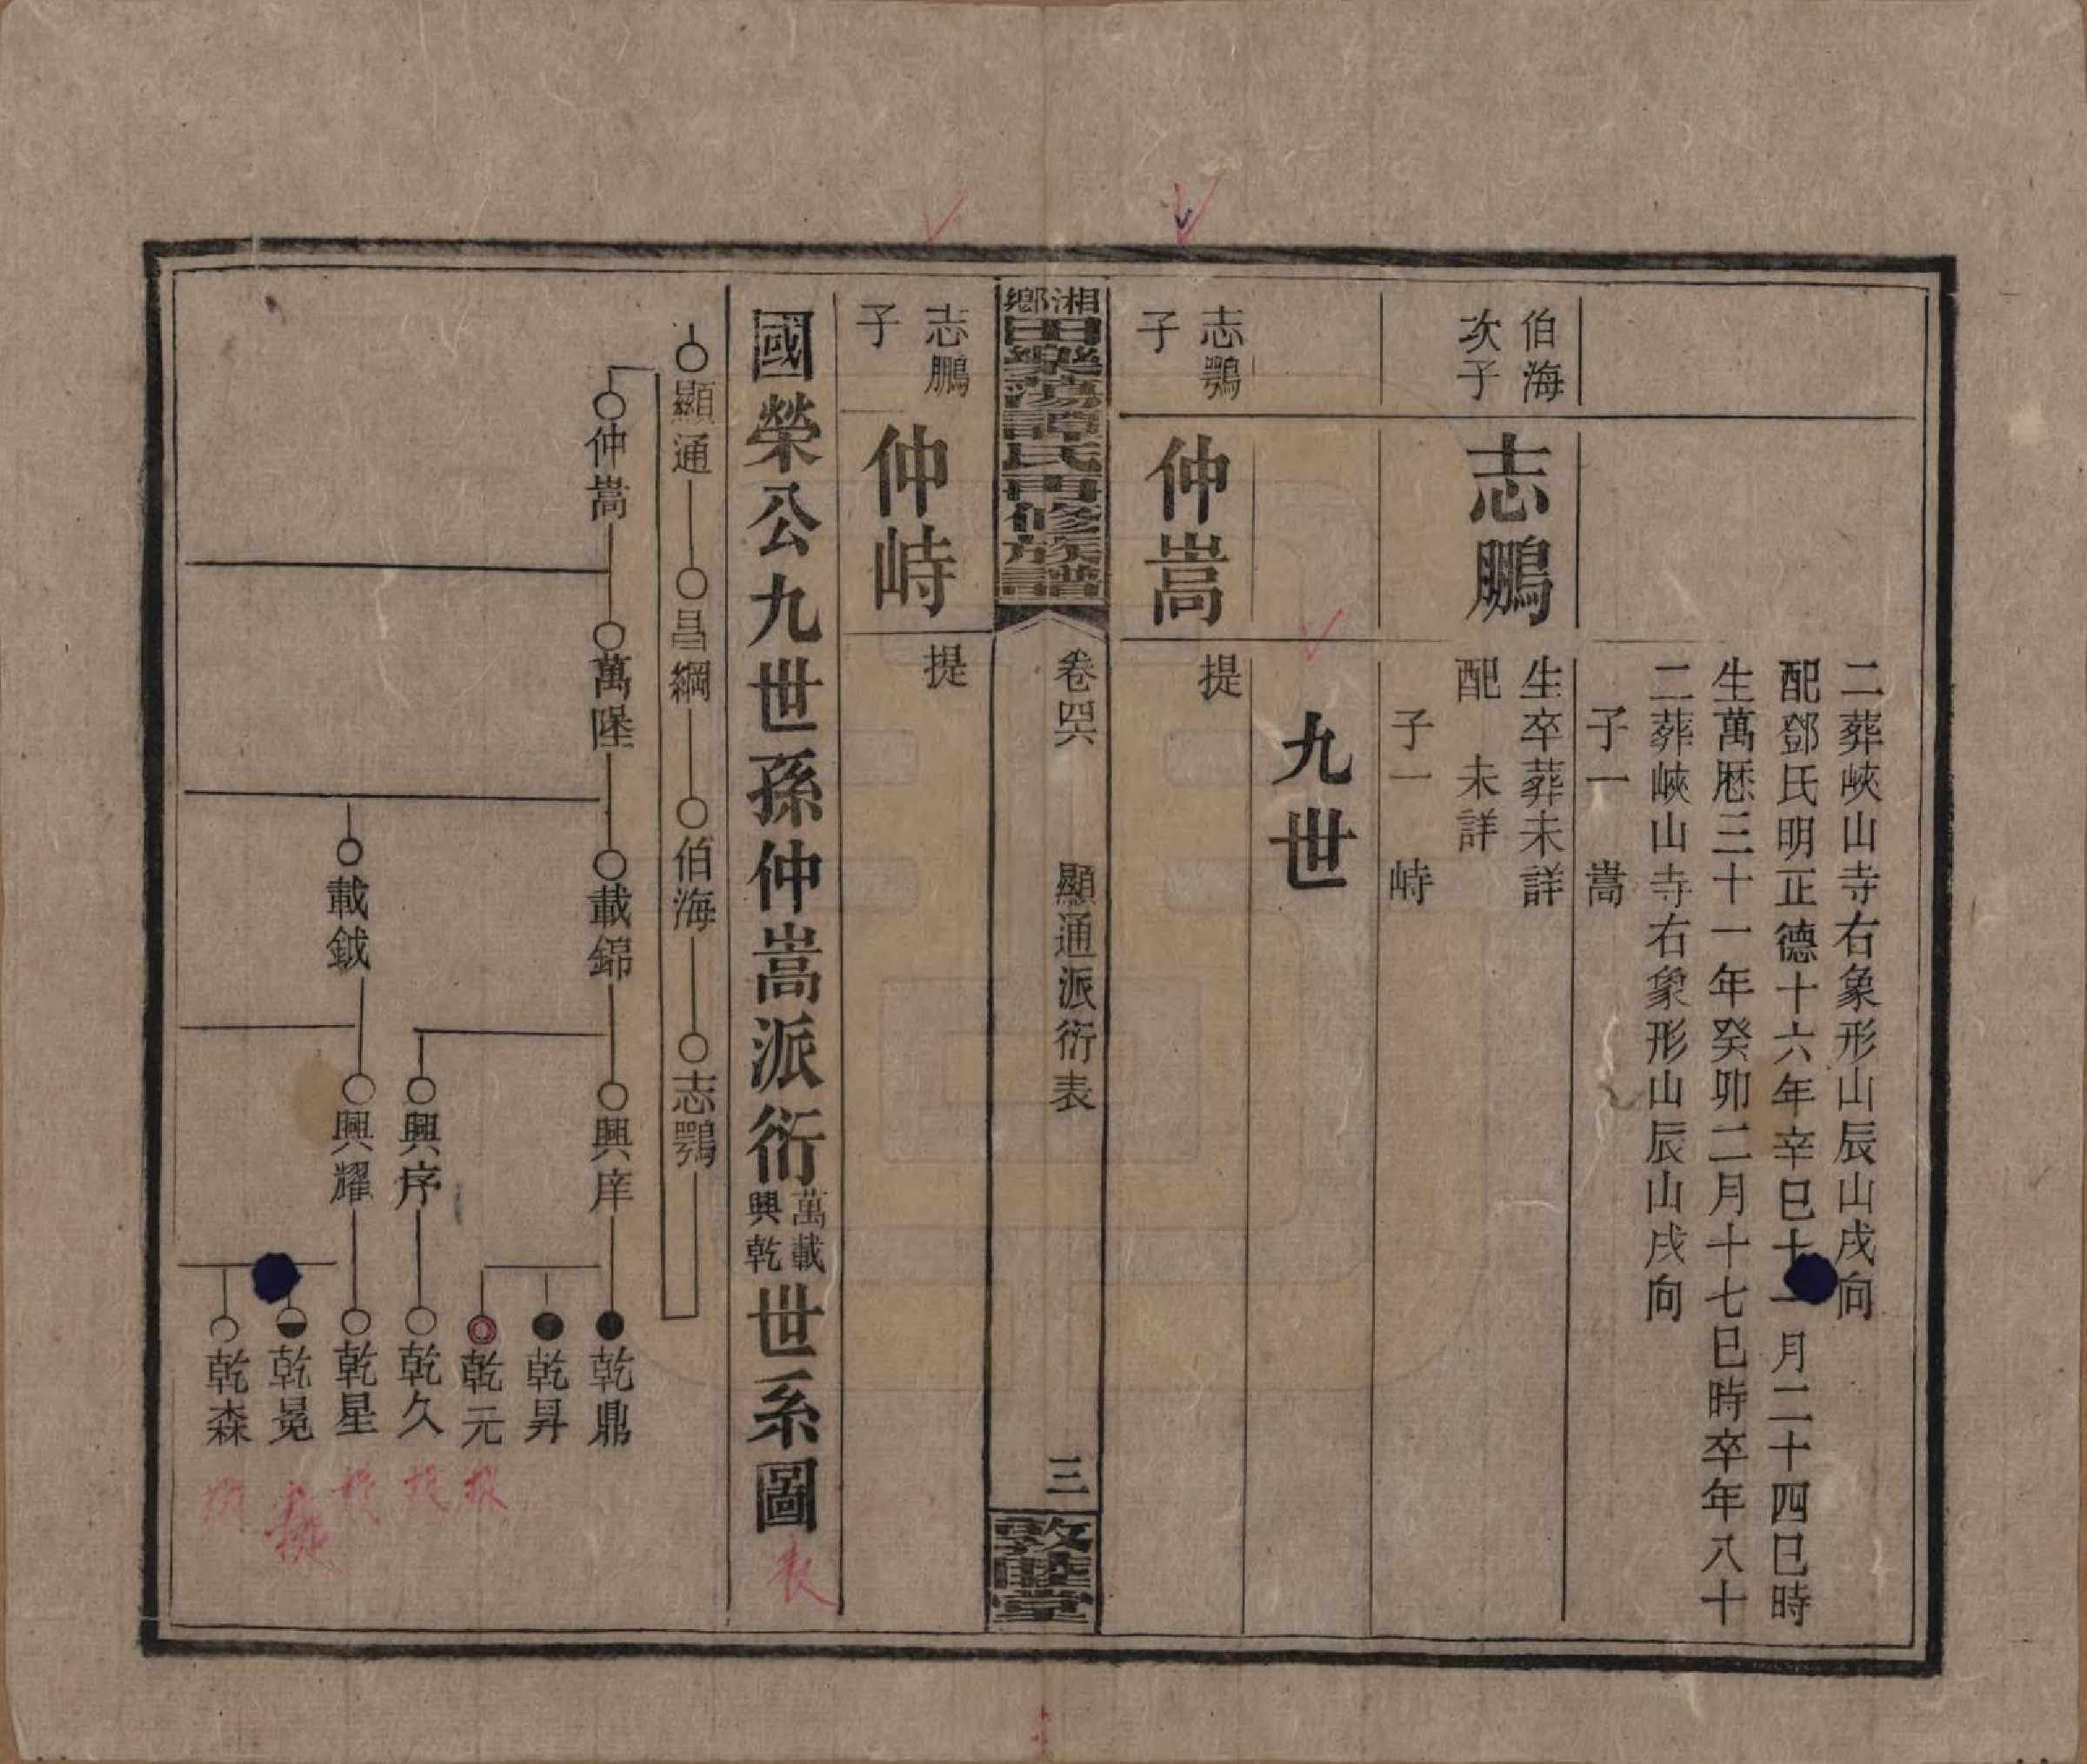 二葬峽山寺右象形山辰山戌向
配鄧氏明正德十六年辛巳十一月二十四巳時
生萬厯三十一年癸卯二月十七巳時卒年八十
二葬峽山寺右象形山辰山戌向
子一 嵩
伯海
次子
志鵬
生卒葬未詳
配 未詳
子一 峙
九世
志鶚
子
仲嵩
提
湘鄉
田樂蕩譚氏再修族譜
卷四六
顯通派衍表
三
敦睦堂
志鵬
子
仲峙
提
國榮公九世孫仲嵩派衍
萬載
興乾
世系圖
表
顯通
昌綱
伯海
志鶚
仲嵩
萬陞
載錦
興庠
乾鼎
乾昇
乾元
興序
乾久
載鉞
興耀
乾星
乾冕
乾森